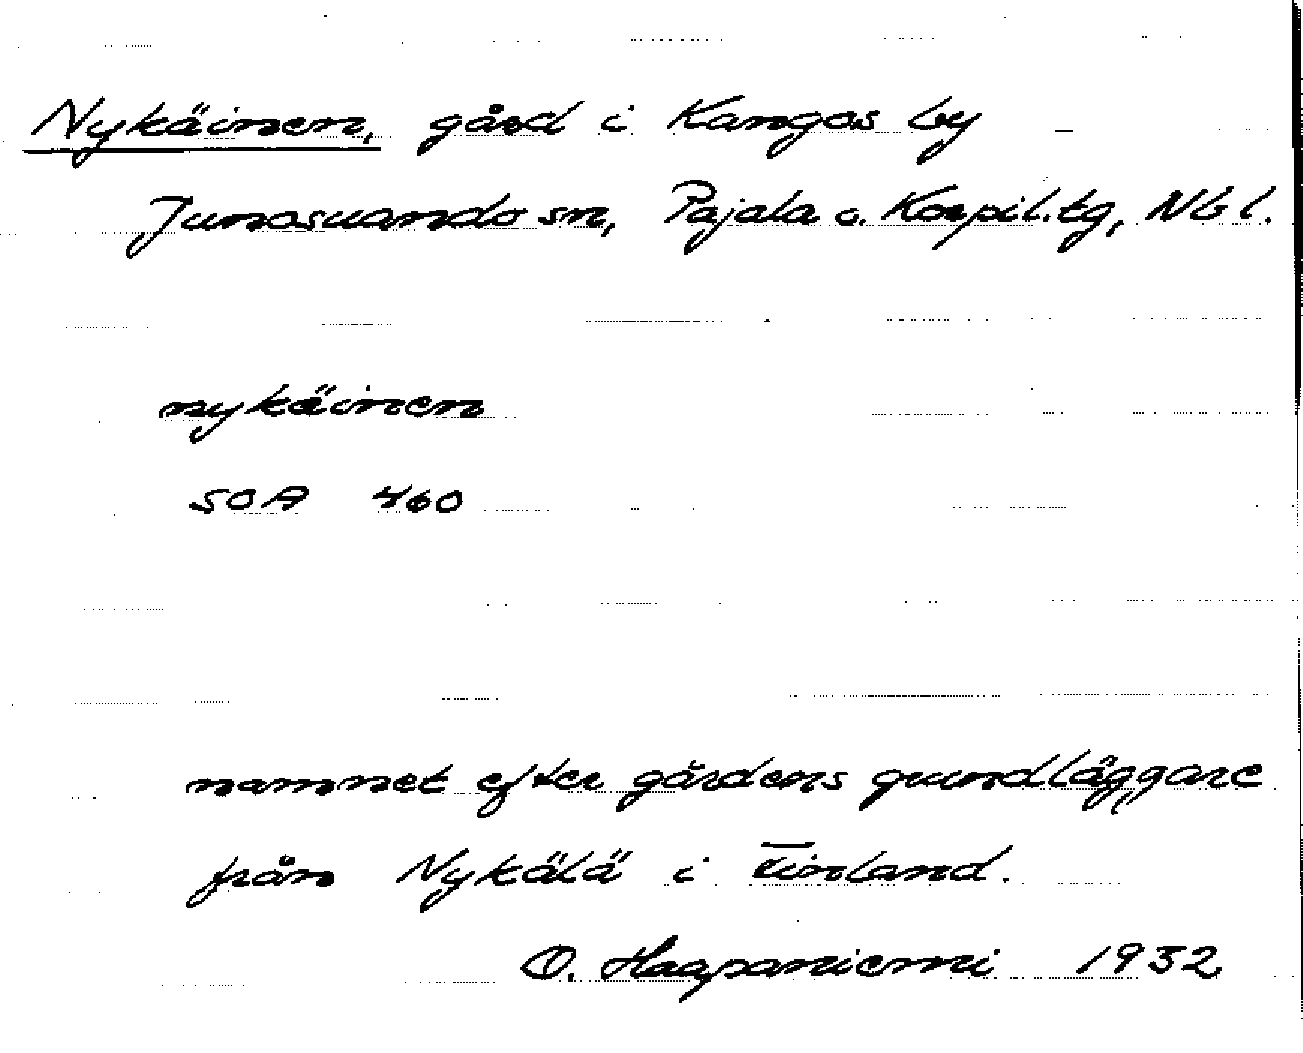 Nykäinen, gård i Kangos by
Junosuando sn, Pajala o. Korpil. tg, Nbl.
nykäinen
SOA 460
namnet efter gårdens grundläggare
från Nykälä i Finland.
O. Haapaniemi 1932